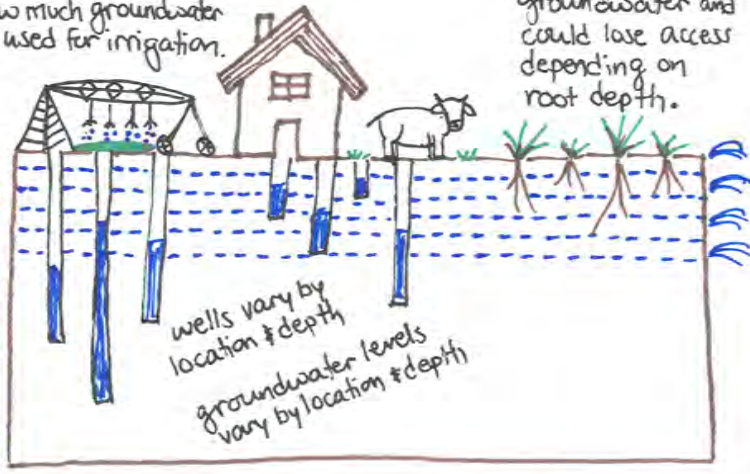 much groundwater
used for irrigation.
groundwater and
could lose access
depending on
root depth.
wells vary by
location & depth
groundwater levels
vary by location & depth